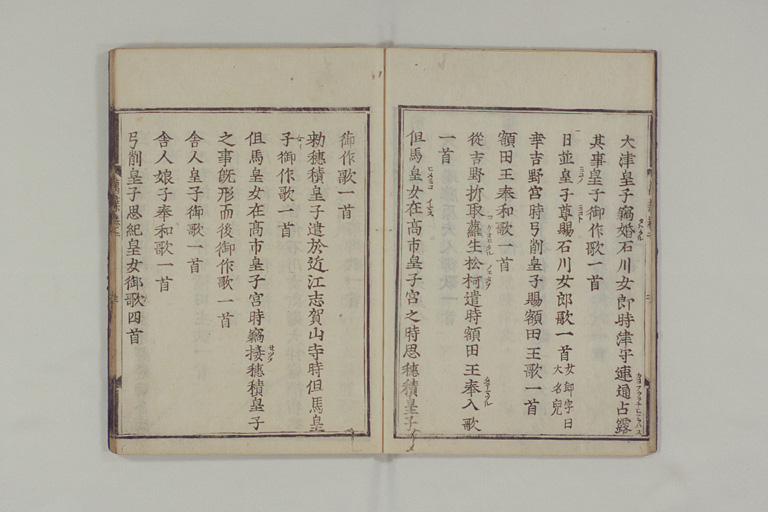 大津皇子竊婚石川女郎時津守連通占露
其事皇子御作歌一首
日並皇子尊賜石川女郎歌一首女郎字曰大名兒
幸吉野宮時弓削皇子賜額田王歌一首
額田王奉和歌一首
從吉野折取蘿生松柯遣時額田王奉入歌
一首
但馬皇女在高市皇子宮之時思穗積皇子
御作歌一首
勅穗積皇子遣於近江志賀山寺時但馬皇
子御作歌一首
但馬皇女在高市皇子宮時竊接穗積皇子
之事既形而後御作歌一首
舎人皇子御歌一首
舎人娘子奉和歌一首
弓削皇子思紀皇女御歌四首